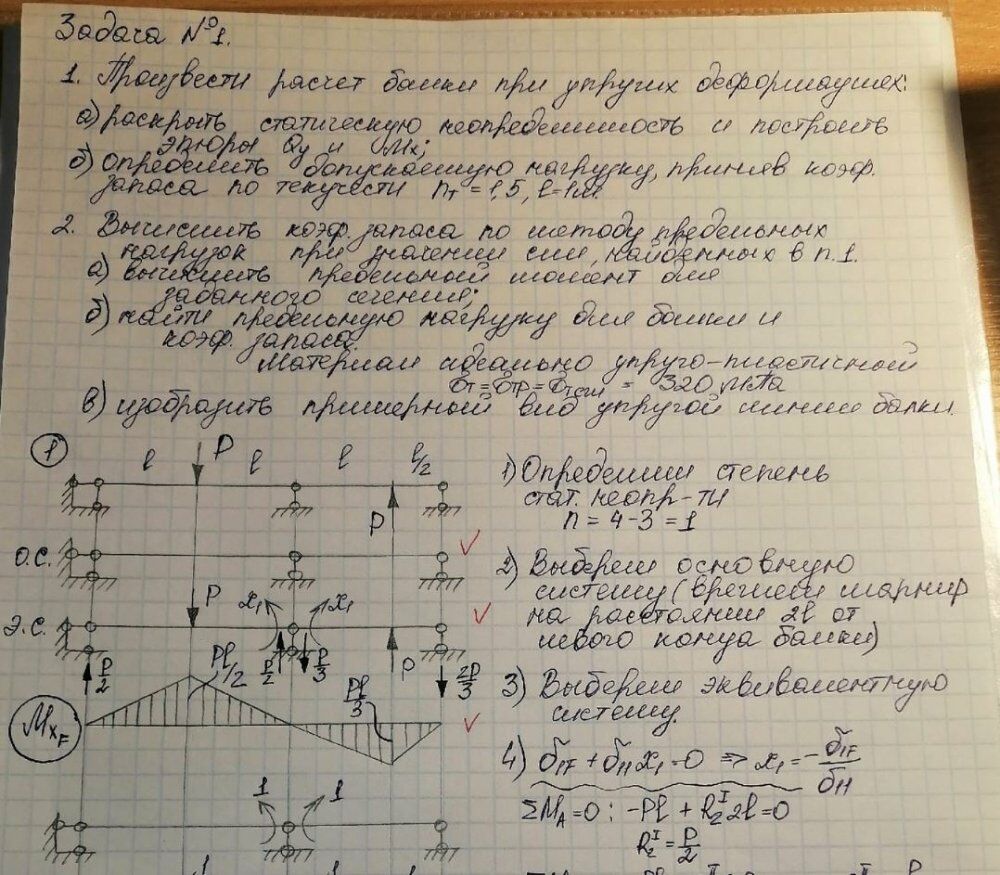 Задача №1.
1. Произвести расчет балки при упругих деформациях:
а) раскрыть статическую неопределимость и построить
эпюры Qy и Mx;
б) определить допускаемую нагрузку, приняв коэф.
запаса по текучести nт = 1,5, l=1м.
2. Вычислить коэф. запаса по методу предельных
нагрузок при значении сил, найденных в п.1.
а) вычислить предельный момент для
заданного сечения;
б) найти предельную нагрузку для балки и
коэф. запаса.
Материал идеально упруго-пластичный
σт = σтр = σтсж = 320 МПа
в) изобразить примерный вид упругой линии балки.
1
l P l l l/2
P
О.С.
P
Э.С. x1 x1
P/2 Pl/2 P/2 P/3 P 2P/3
Pl/3
MxF
1 1
1) Определим степень
стат. неопр-ти
n = 4-3 = 1
2) Выберем основную
систему (врежем шарнир
на расстоянии 2l от
левого конца балки)
3) Выберем эквивалентную
систему.
4) δ1F + δ11 x1 = 0 => x1 = - δ1F/δ11
ΣMA = 0: -Pl + R2^I 2l = 0
R2^I = P/2